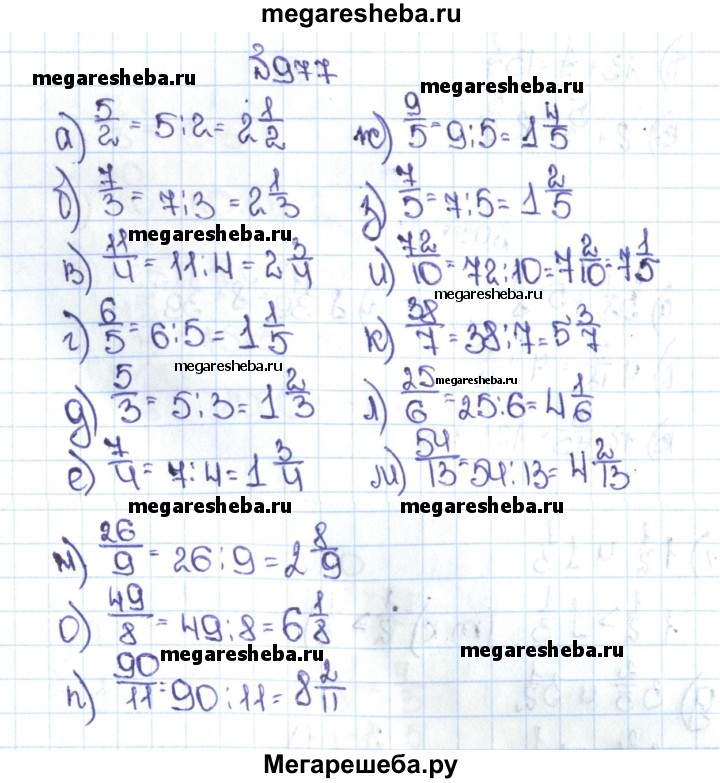 megaresheba.ru
№977
megaresheba.ru
megaresheba.ru
а) 5/2 = 5:2 = 2 1/2
ж) 9/5 = 9:5 = 1 4/5
б) 7/3 = 7:3 = 2 1/3
з) 7/5 = 7:5 = 1 2/5
megaresheba.ru
в) 11/4 = 11:4 = 2 3/4
и) 72/10 = 72:10 = 7 2/10 = 7 1/5
megaresheba.ru
г) 6/5 = 6:5 = 1 1/5
к) 38/7 = 38:7 = 5 3/7
megaresheba.ru
megaresheba.ru
д) 5/3 = 5:3 = 1 2/3
л) 25/6 = 25:6 = 4 1/6
е) 7/4 = 7:4 = 1 3/4
м) 54/13 = 54:13 = 4 2/13
megaresheba.ru
megaresheba.ru
н) 26/9 = 26:9 = 2 8/9
о) 49/8 = 49:8 = 6 1/8
megaresheba.ru
megaresheba.ru
п) 90/11 = 90:11 = 8 2/11
Мегарешеба.ру